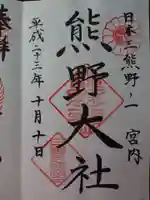 日本三熊野ノ一 宮内
熊野大社
平成二十三年十月十日
奉拝